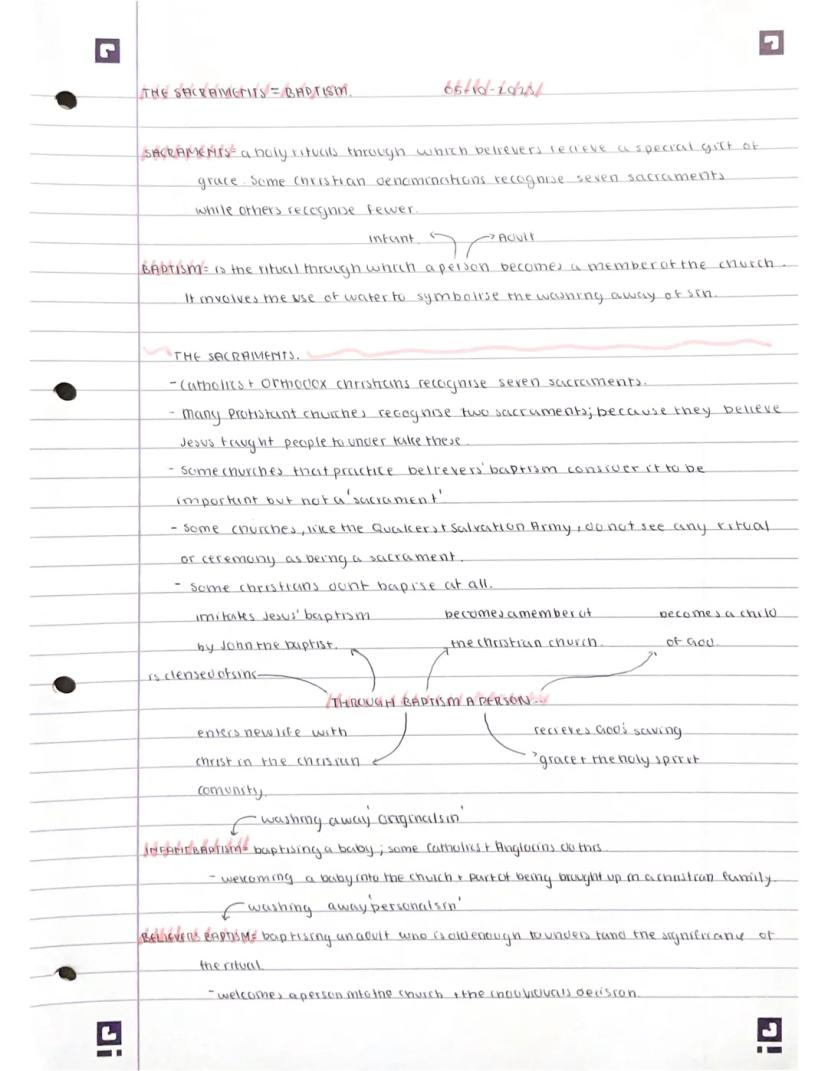 THE SACRAMENTS = BAPTISM.
SACRAMENTS= a holy rituals through which believers recieve a special gift of
grace. Some christian denominations recognise seven sacraments
while others recognise fewer.
infant Adult
BAPTISM= is the ritual through which a person becomes a member of the church.
It involves the use of water to symbolise the washing away of sin.
THE SACRAMENTS.
- Catholics + Orthodox christians recognise seven sacraments.
- many Protistant churches recognise two sacraments; because they believe
Jesus taught people to under take these.
- some churches that practice believers' baptism consider it to be
important but not a 'sacrament'
- some churches, like the Quakers + Salvation Army, do not see any ritual
or ceremony as being a sacrament.
- some christians dont bapise at all.
imitates Jesus' baptism becomes a member of becomes a child
by John the baptist. the christian church. of God.
is clensed of sins
THROUGH BAPTISM A PERSON...
enters new life with recieves God's saving
christ in the chrisiun grace + the holy spirit
comunity.
washing away 'original sin'
INFANT BAPTISM= baptising a baby; some Catholics + Anglacins do this.
- welcoming a baby into the church + part of being brought up in a christian family.
washing away 'personal sin'
BELIEVERS BAPTISM= baptising an adult who is old enough to understand the significance of
the ritual.
- welcomes a person into the church + the individuals decision.